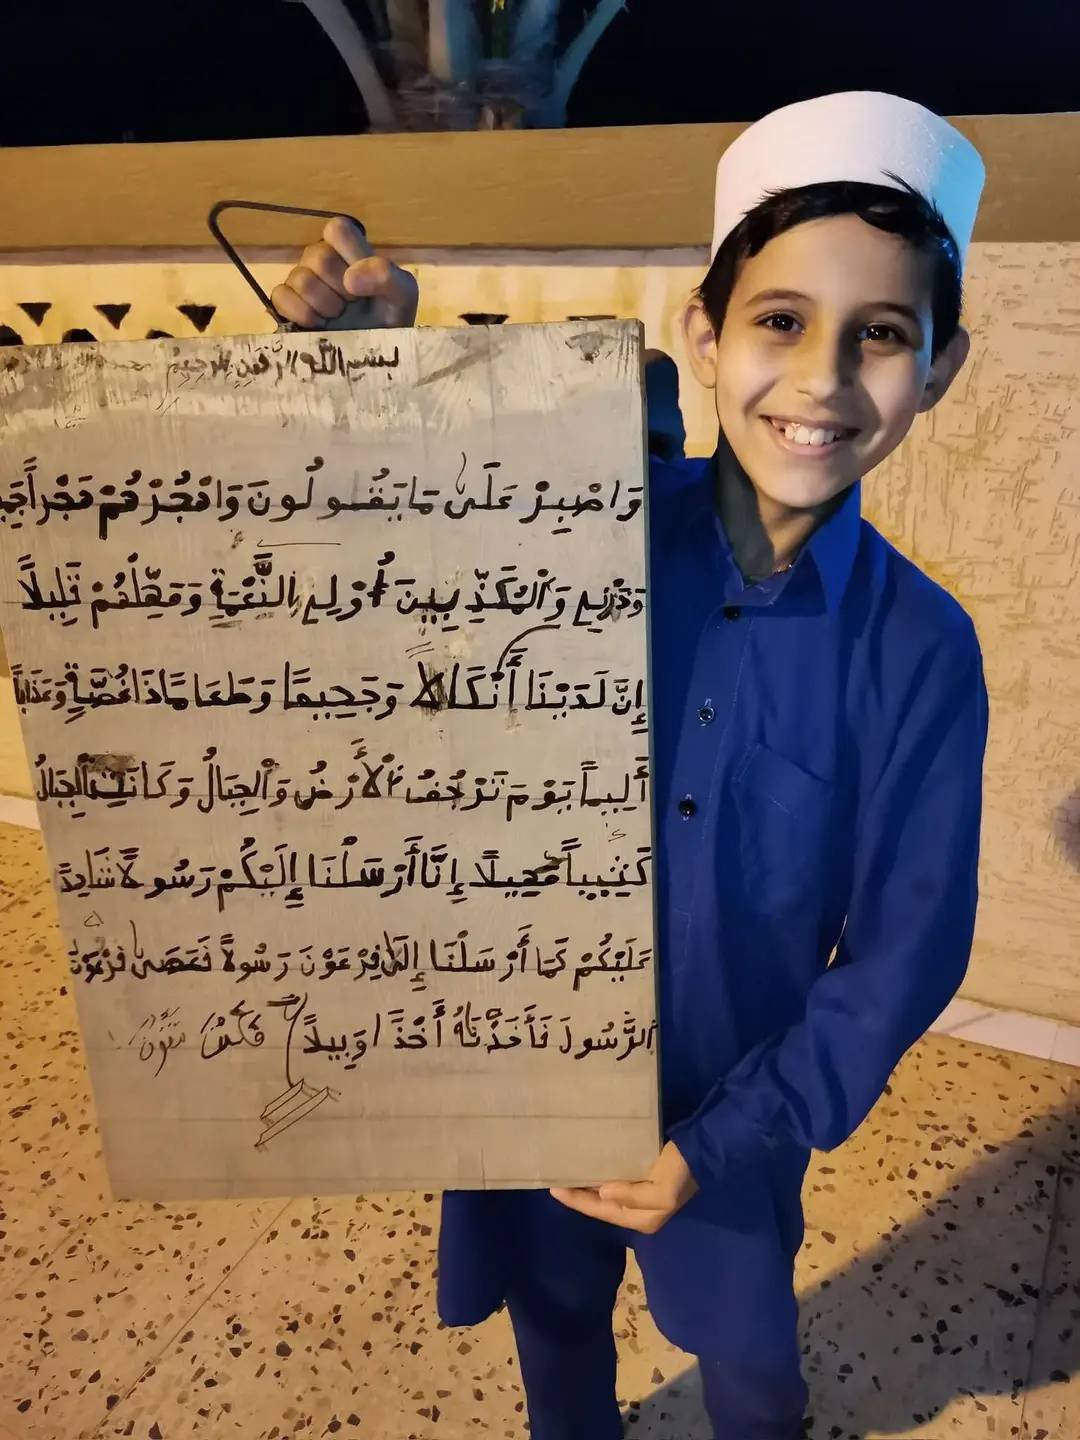 بسم الله الرحمن الرحيم
وَاصْبِرْ عَلَى مَا يَقُولُونَ وَاهْجُرْهُمْ هَجْراً جَمِ
وَذَرْنِي وَالْمُكَذِّبِينَ أُوْلِي النَّعْمَةِ وَمَهِّلْهُمْ قَلِيلًا
إِنَّ لَدَيْنَا أَنْكَالاً وَجَحِيمًا وَطَعَامًا ذَا غُصَّةٍ وَعَذَاباً
أَلِيماً يَوْمَ تَرْجُفُ الْأَرْضُ وَالْجِبَالُ وَكَانَتِ الْجِبَالُ
كَثِيباً مَهِيلًا إِنَّا أَرْسَلْنَا إِلَيْكُمْ رَسُولًا شَاهِدً
عَلَيْكُمْ كَمَا أَرْسَلْنَا إِلَى فِرْعَوْنَ رَسُولاً فَعَصَى فِرْعَوْنُ
الرَّسُولَ فَأَخَذْنَاهُ أَخْذًا وَبِيلاً فَكَيْفَ تَتَّقُونَ